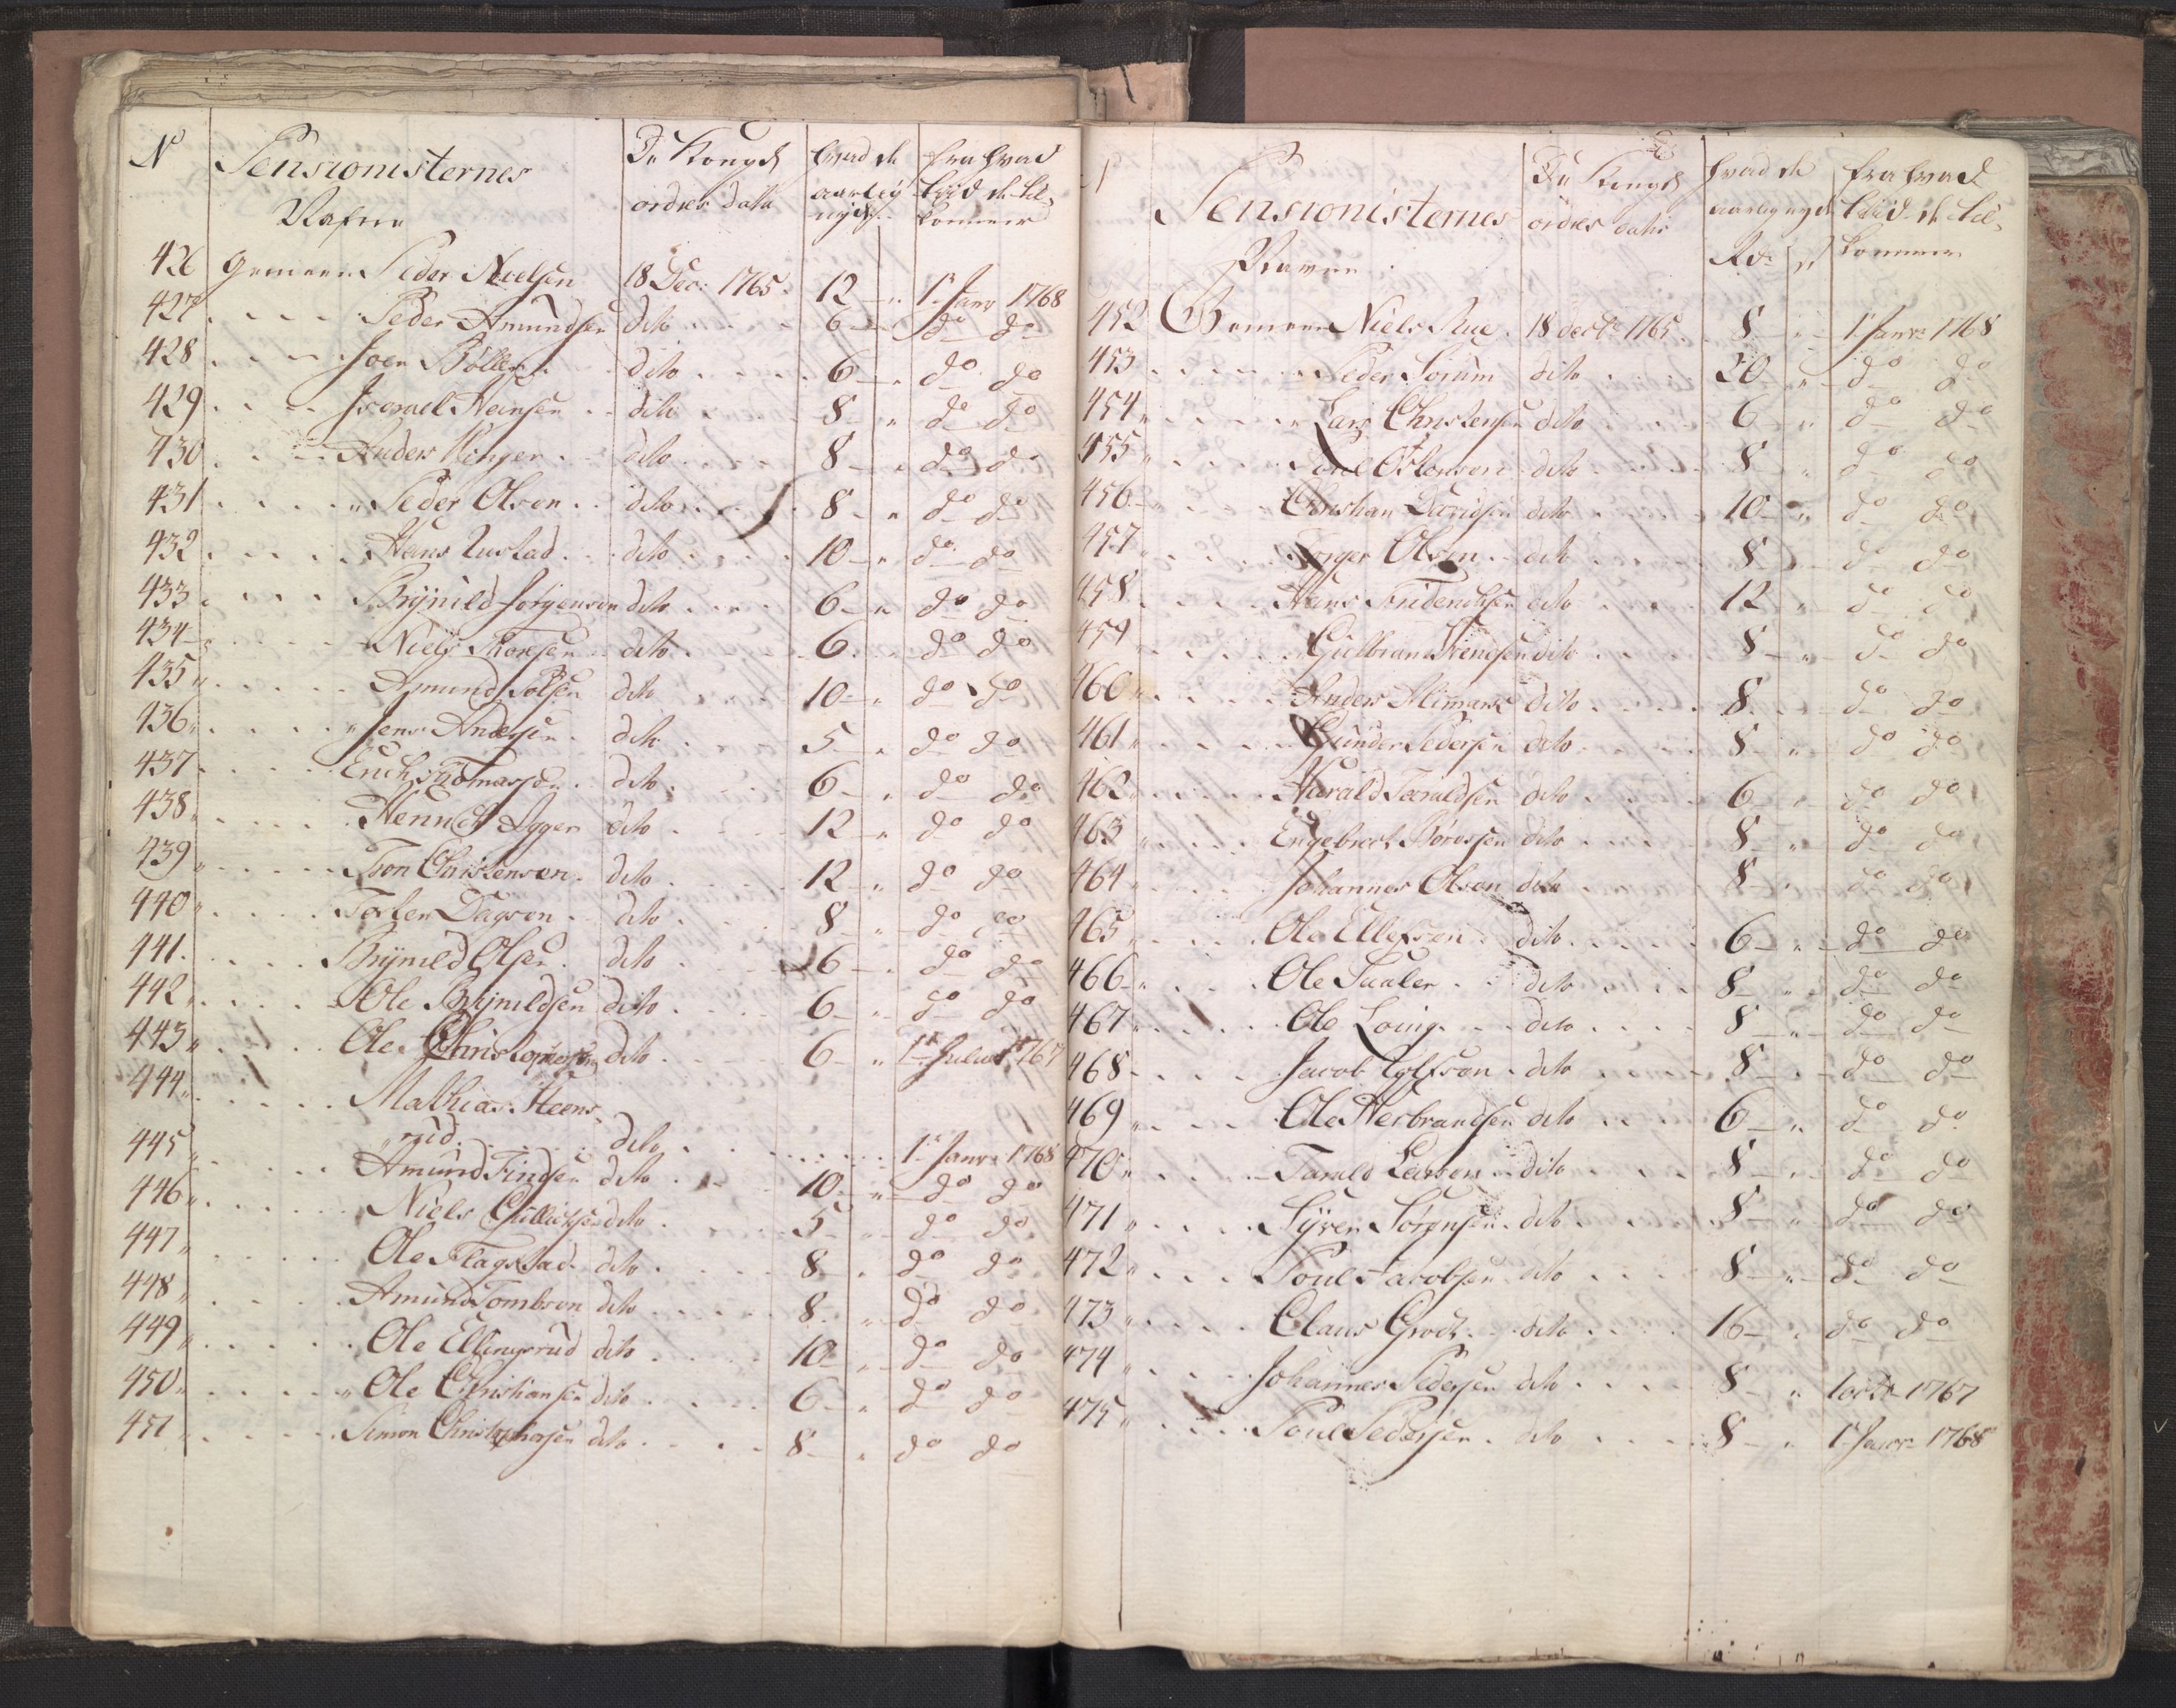 N Pensionisternes De Kongel hvad de fra hvad
Nafne ordres data aarlig tiid de til-
nyde kommer
426 Gemeen Peder Nielsen 18 Dec: 1765. 12 " 1 Janr 1768
427 Peder Amundsen dito 6 do do
428 Joen dito 6 " do do
429 Jsrael Hansen dito 8 " do do
430 Anders Ringer dito 8 " do do
431 " Peder Olsen dito 8 " do do
432 Hans Rustad dito 10 " do do
433 Brÿnild Jorgensen dito 6 " do do
434 Niels Thoresen dito 6 do do
435 " Amund dito 10 " do do
436 " " Jens Andersen dito 5 " do do
437 Erich Thomassen dito 6 " do do
438 " Henrich Agger dito 12 " do do
439 " Tron Christensen dito 12 " do do
440 " Torsten Dagsen dito 8 " do do
441. Brÿnild Olsen dito 6 " do do
442 " Ole Brÿnildsen dito 6 " do do
443 " Ole Christophersen dito 6 " 1 Julii 1767
444 " Mathias Steens-
rud dito 1 Janr 1768
445 " Amund Findsen dito 10 " do do
446 " Niels Gullichsen dito 5 " do do
447 " Ole Flagstad dito 8 " do do
448 " Amund dito 8 " do do
449 " Ole Ellingsrud dito 10 " do do
450 " " Ole Christiansen dito 6 " do do
451 " Simon Christophersen dito 8 " do do
N Pensionisternes De Kongel hvad de fra hvad
ordres datis aarlig nyde tiid de til-
Navne Rdr s kommer
452 Gemeen Niels Rye 18 dectr 1765. 8 " 1 Janr 1768
453 Peder Sörum dito 20 " do do
454 " Lars Christensen dito 6 " do do
455 " Poul Östensen dito 8 " do do
456 " Christian Davidsen dito 10 " do do
457 " Olsen dito 8 " do do
458 Hans Friderichsen dito 12 " do do
459 " Gulbrand Svendsen dito 8 " do do
460 " Anders dito 8 do do
461 " Gunder Pedersen dito 8 " do do
462 " Harald Taraldsen dito 6 " do do
463 " Engebrect dito 8 " do do
464 " Johannes Olsen dito 8 " do do
465 " Ole Ellefsen dito 6 " do do
466 " Ole dito 8 " do do
467 " Ole dito 8 " do do
468 Jacob dito 8 " do do
469 " Ole Herbrandsen dito 6 " do do
470 " Tarald Larsen dito 8 " do do
471 " Syver Sörensen dito 8 " do do
472 " Poul Jacobsen dito 8 " do do
473 " Claus dito 16 " do do
474 " Johannes Pedersen dito 8 " 1 octr 1767
475 " Poul Pedersen dito 8 " 1 Janr 1768